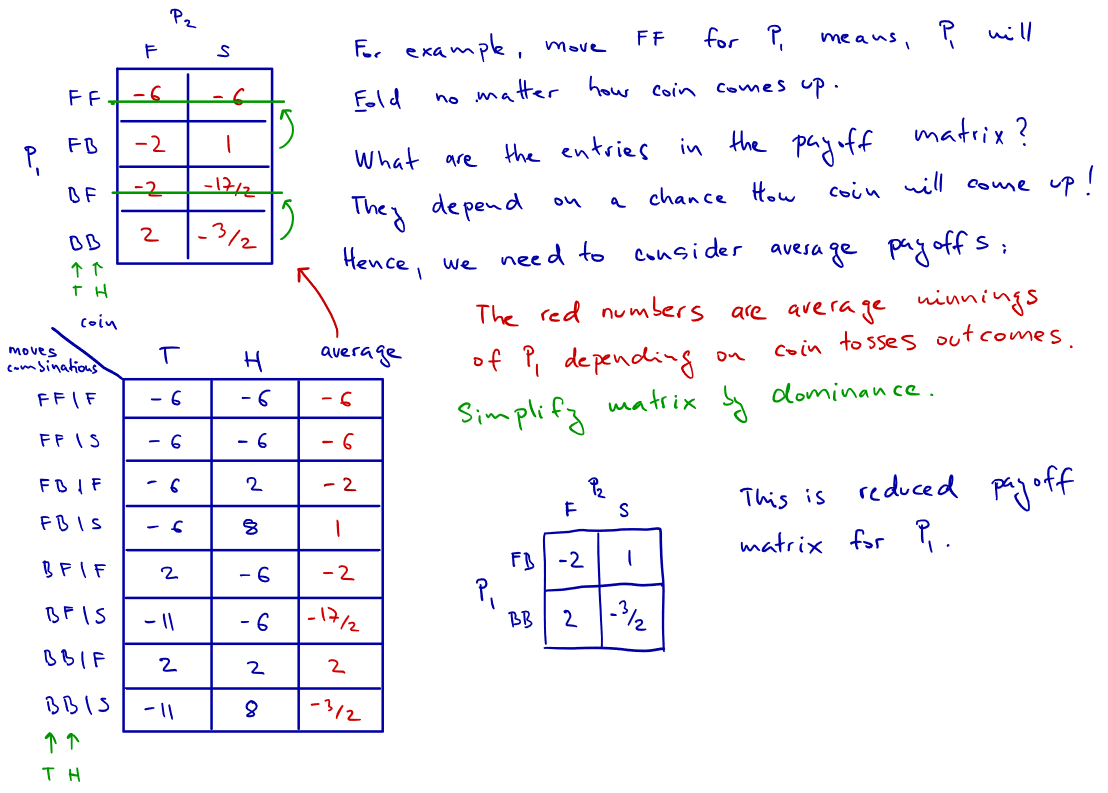 P2
F S
FF -6 -6
FB -2 1
P1
BF -2 -17/2
BB 2 -3/2
T H
coin
For example, move FF for P1 means, P1 will
Fold no matter how coin comes up.
What are the entries in the payoff matrix?
They depend on a chance How coin will come up!
Hence, we need to consider average payoffs:
The red numbers are average winnings
of P1 depending on coin tosses outcomes.
Simplify matrix by dominance.
moves combinations T H average
FF|F -6 -6 -6
FF|S -6 -6 -6
FB|F -6 2 -2
FB|S -6 8 1
BF|F 2 -6 -2
BF|S -11 -6 -17/2
BB|F 2 2 2
BB|S -11 8 -3/2
T H
P2
F S
FB -2 1
P1
BB 2 -3/2
This is reduced payoff
matrix for P1.